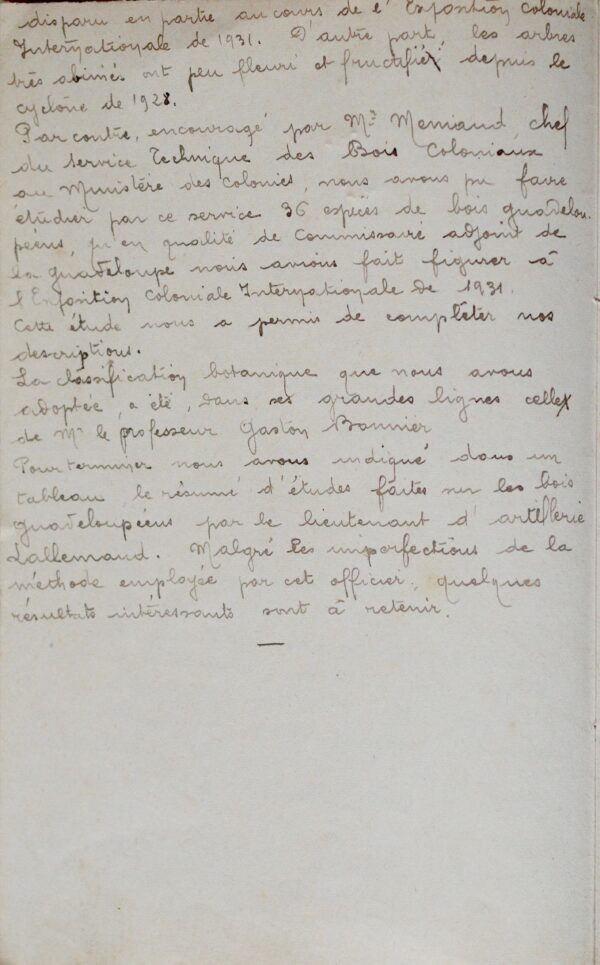 disparu en partie au cours de l'Exposition Coloniale
Internationale de 1931. D'autre part, les arbres
très abimés ont peu fleuri et fructifié depuis le
cyclône de 1928.
Par contre, encouragé par Mr Meniaud, chef
du service Technique des Bois Coloniaux
au Ministère des Colonies, nous avons pu faire
étudier par ce service 36 espèces de bois guadelou-
péens, qu'en qualité de Commissaire adjoint de
la guadeloupe nous avions fait figurer à
l'Exposition Coloniale Internationale de 1931.
Cette étude nous a permis de complêter nos
descriptions.
La classification botanique que nous avons
adoptée, a été, dans ses grandes lignes celle
de Mr le professeur Gaston Bonnier
Pour terminer nous avons indiqué dans un
tableau, le résumé d'études faites sur les bois
guadeloupéens par le lieutenant d'artillerie
Lallemand. Malgré les imperfections de la
méthode employée par cet officier, quelques
résultats intéressants sont à retenir.